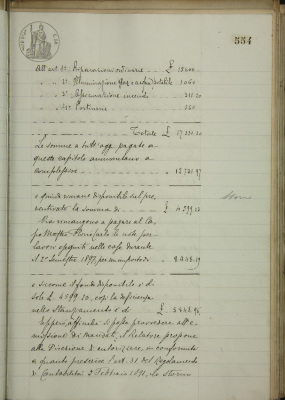 554
All'art. 1º Riparazioni ordinarie £ 15600.
" " 2º Illuminazione gaz e acqua potabile " 1060.
" " 3º Assicurazione incendi " 311.20
" " 4º Portinerie " 360.
Totale £ 17331.20
Le somme a tutt'oggi pagate a
questo capitolo ammontano a
complessive " 12731.97
e quindi rimane disponibile sul pre-
ventivato la somma di £ 4599.23
Storno
Ma rimangono a pagare al Ca-
po Mastro le note per
lavori eseguiti nelle case durante
il 2º Semestre 1897, per un importo di " 8448.19
e siccome il fondo disponibile è di
sole £ 4599.23, così la deficienza
nello Stanziamento è di £ 3848.96
Epperò, affinché si possa provvedere all'e-
missione di mandati, il Relatore propone
alla Direzione di autorizzare, in conformità
a quanto prescrive l'art. 31 del Regolamento
di Contabilità 2 Febbraio 1891, lo storno